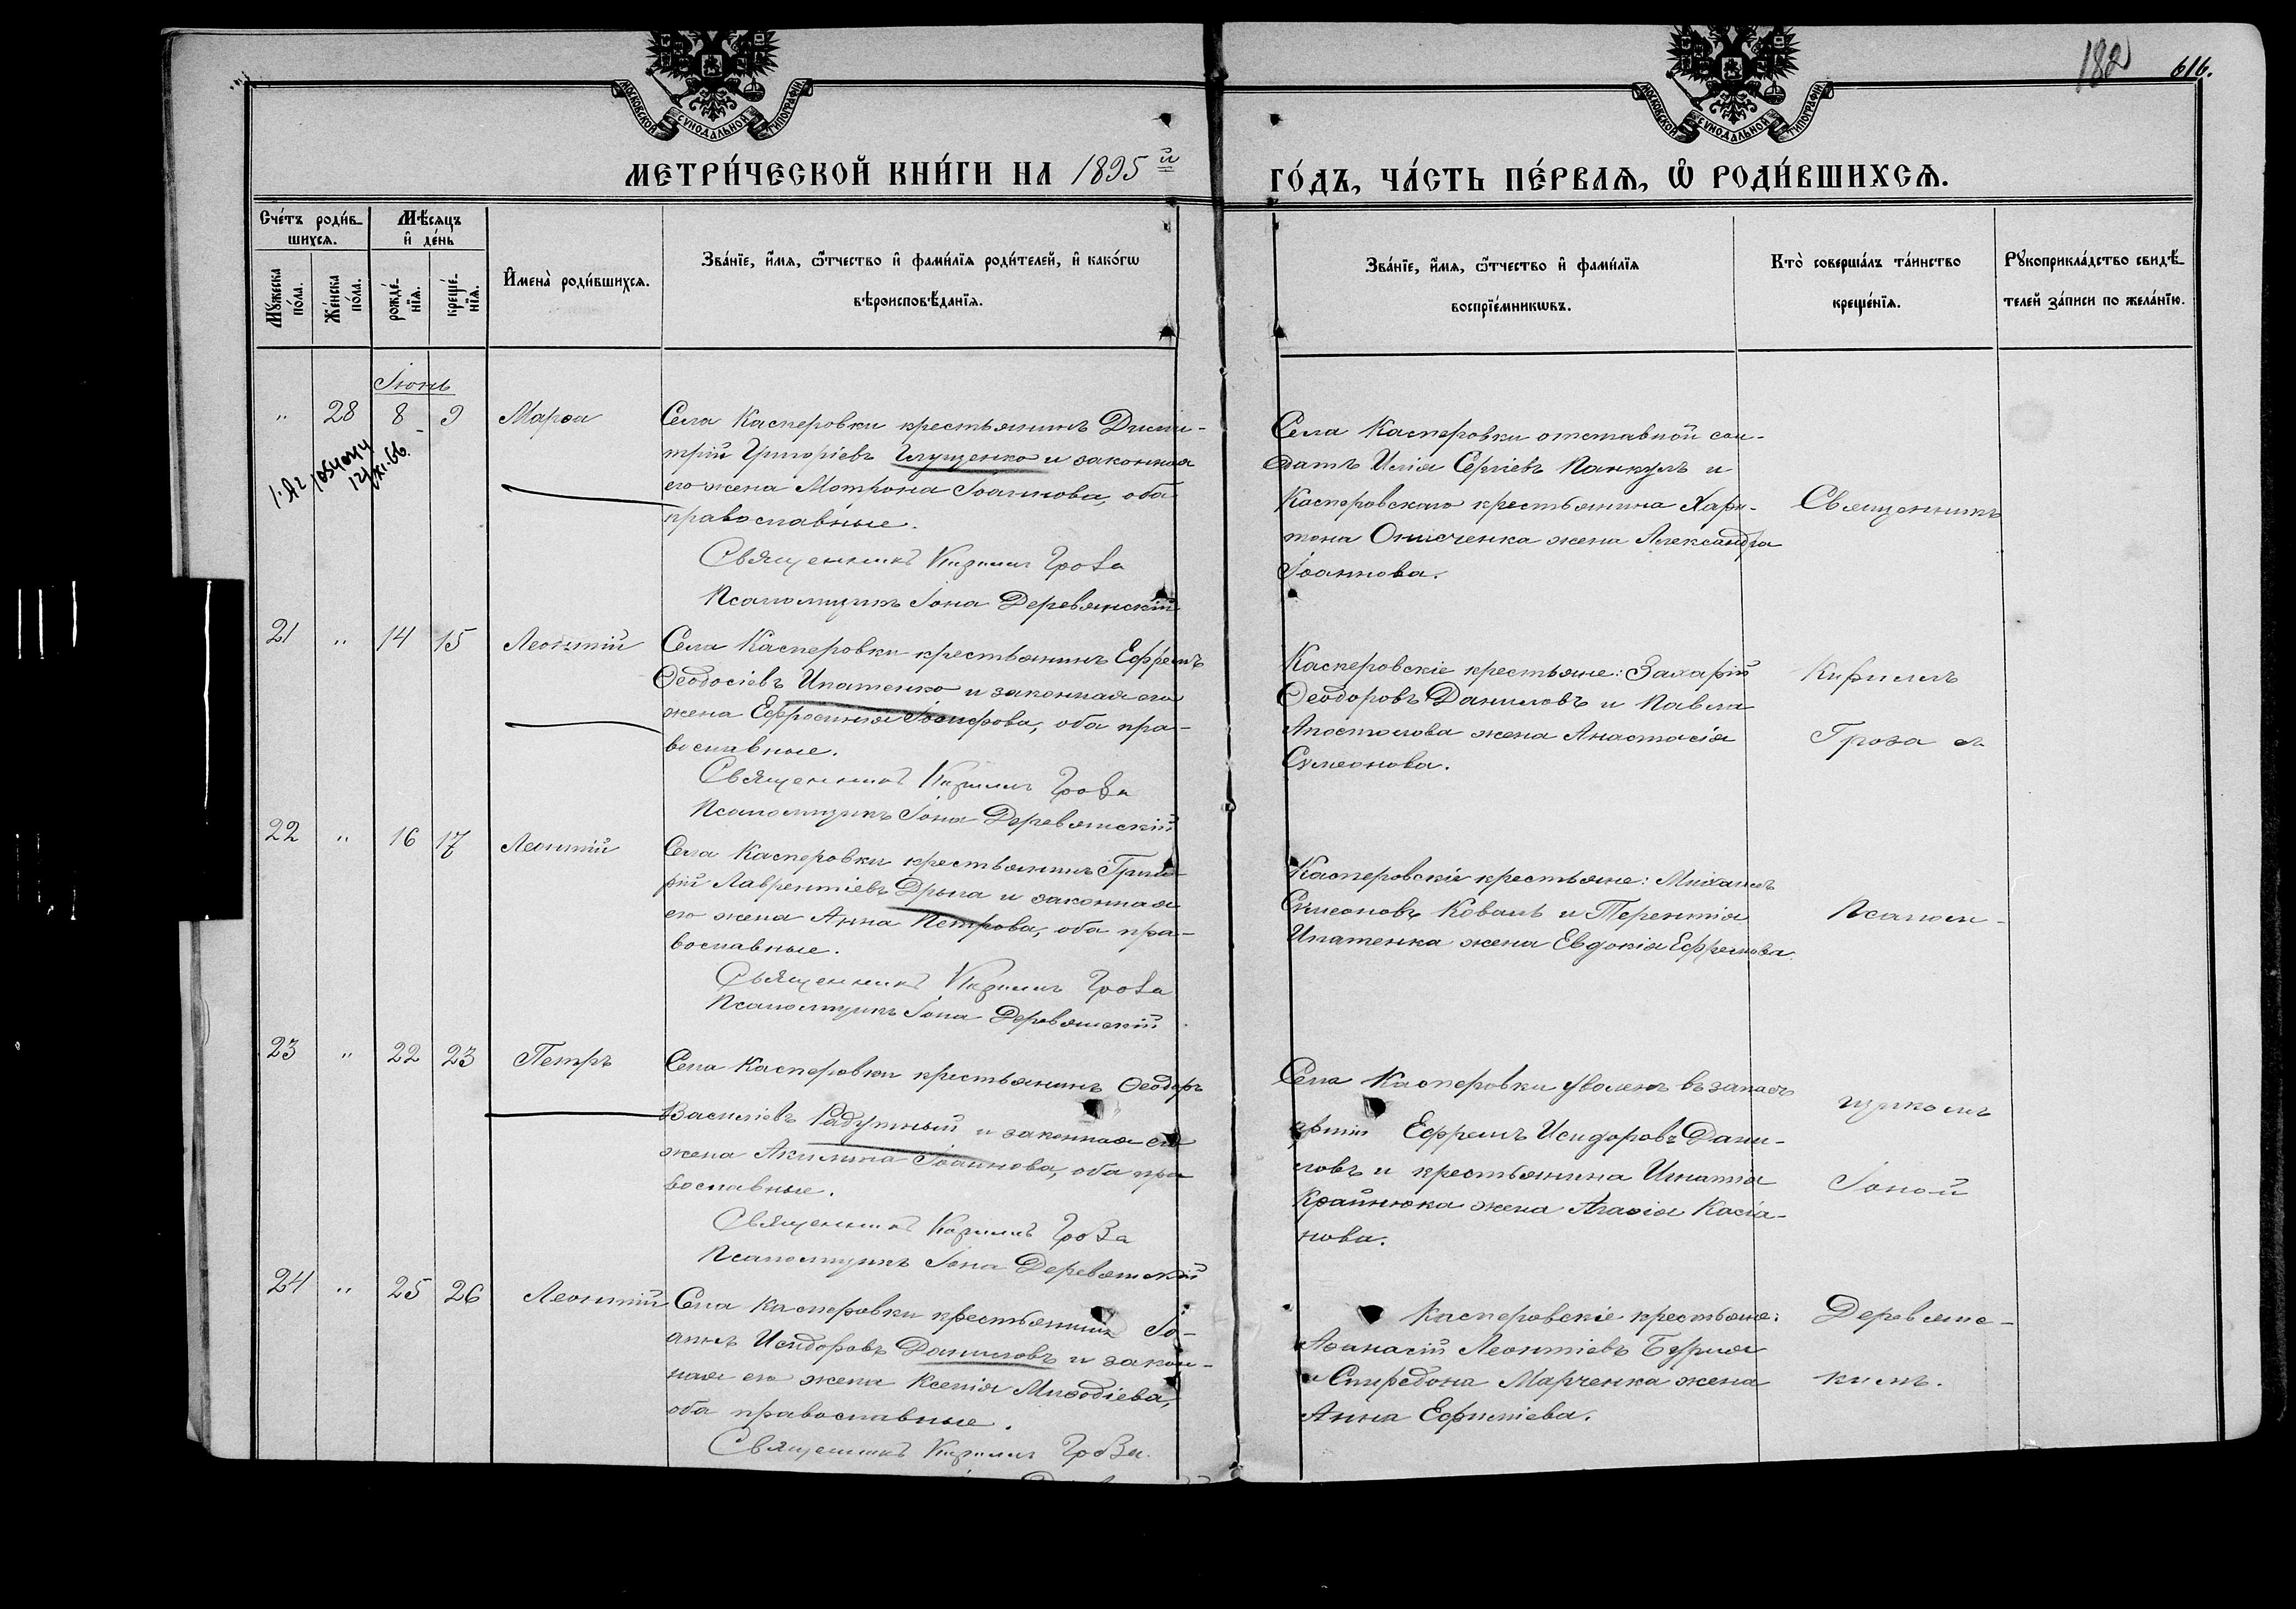 182 616.
МОСКОВСКОЙ СѴНОДАЛЬНОЙ ТИПОГРАФІИ
МОСКОВСКОЙ СѴНОДАЛЬНОЙ ТИПОГРАФІИ
МЕТРИ́ЧЕСКОЙ КНИ́ГИ НА 1895 й
ГО́ДЪ, ЧА́СТЬ ПЕ́РВАѦ, Ѡ҆ РОДИ́ВШИХСѦ.
Сче́тъ роди́в-
шихсѧ.
Мѣ́сѧцъ
и҆ де́нь
Мꙋ́жеска по́ла.
Же́нска по́ла.
рожде́-
нїѧ.
креще́-
нїѧ.
И҆мена̀ роди́вшихсѧ.
Зва́нїе, и҆́мѧ, ѻ҆́тчество и҆ фами́лїѧ роди́телей, и҆ како́гѡ
вѣроисповѣ́данїѧ.
Зва́нїе, и҆́мѧ, ѻ҆́тчество и҆ фами́лїѧ
воспрїе́мникѡвъ.
Кто̀ соверша́лъ та́инство
креще́нїѧ.
Рꙋкоприкла́дство свидѣ́-
телей за́писи по жела́нїю.
Іюнь
" 28 8 9 Марѳа
Села Касперовки крестьянинъ Дими-
трій Григоріевъ Глущенко и законная
его жена Матрона Іоаннова, оба
православные.
Священникъ Кириллъ Гроза
Псаломщикъ Іона Деревянскій
Села Касперовки отставной сол-
датъ Илія Сергіевъ Панкулъ и
Касперовскаго крестьянина Хари-
тона Онисченка жена Александра
Іоаннова.
Священникъ
21 " 14 15 Леонтій
Села Касперовки крестьянинъ Ефремъ
Ѳеодосіевъ Ипатенко и законная его
жена Ефросинія Іосифова, оба пра-
вославные.
Священникъ Кириллъ Гроза
Псаломщикъ Іона Деревянскій
Касперовскіе крестьяне: Захарій
Ѳеодоровъ Даниловъ и Павла
Апостолова жена Анастасія
Симеонова.
Кириллъ
Гроза съ
22 " 16 17 Леонтій
Села Касперовки крестьянинъ Григо-
рій Лаврентіевъ Дрыга и законная
его жена Анна Петрова, оба пра-
вославные.
Священникъ Кириллъ Гроза
Псаломщикъ Іона Деревянскій
Касперовскіе крестьяне: Михаилъ
Симеоновъ Коваль и Терентія
Ипатенка жена Евдокія Ефремова.
Псалом-
23 " 22 23 Петръ
Села Касперовки крестьянинъ Ѳеодоръ
Василіевъ Радутный и законная его
жена Акилина Іоаннова, оба пра
вославные.
Священникъ Кириллъ Гроза
Псаломщикъ Іона Деревянскій
Села Касперовки уволен въ запасъ
арміи Ефремъ Исидоровъ Дани-
ловъ и крестьянина Игнатія
Крайнюка жена Агафія Касіа-
нова.
щикомъ
Іоной
24 " 25 26 Леонтій
Села Касперовки крестьянинъ Іо-
аннъ Исидоровъ Даниловъ и закон-
ная его жена Ксенія Миѳодіева,
оба православные.
Священникъ Кириллъ Гроза.
Касперовскіе крестьяне:
Аѳанасій Леонтіевъ Бурлая
и Спиридона Марченка жена
Анна Ефиміева.
Деревянс-
кимъ.